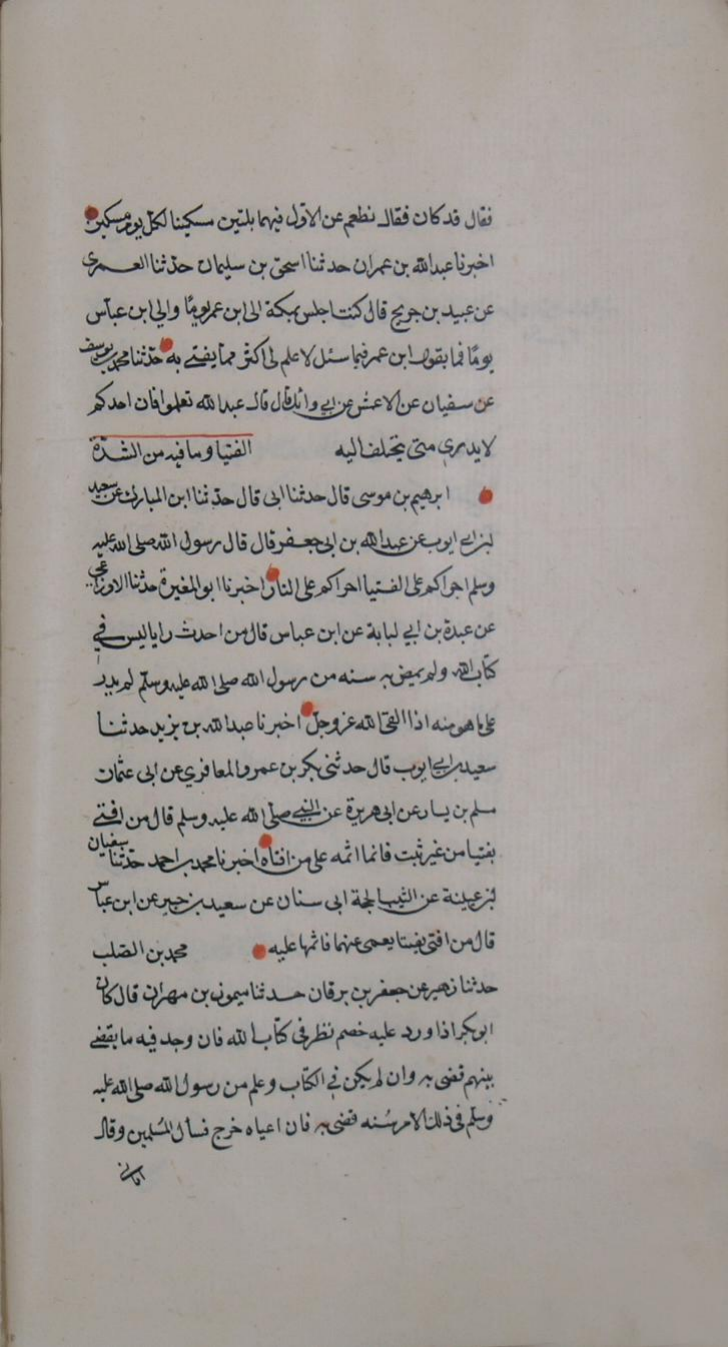 فقال قد كان فقال نطعم عن الاول فيهما ثلثين مسكينا لكل يوم مسكين
اخبرنا عبدالله بن عمران حدثنا اسحق بن سليمان حدثنا العمرى
عن عبيد بن جريج قال كنت اجلس بمكة الى ابن عمر يومًا والى ابن عباس
يومًا فما يقول ابن عمر فيما سئل لا علم لى اكثر مما يفتى به حدثنا محمد بن يوسف
عن سفيان عن الاعمش عن ابى وائل قال قال عبد الله تعلموا فان احدكم
لا يدرى متى يختلف اليه الفتيا وما فيه من الشدّة
ابرهيم بن موسى قال حدثنا ابى قال حدثنا ابن المبارك عن سعيد
بن ابى ايوب عن عبدالله بن ابى جعفر قال قال رسول الله صلى الله عليه
وسلم اجراكم على الفتيا اجراكم على النار اخبرنا ابو المغيرة حدثنا الاوزاعى
عن عبدة بن ابى لبابة عن ابن عباس قال من احدث رايا ليس فى
كتاب الله ولم يمض به سنه من رسول الله صلى الله عليه وسلم لم يدر
على ما هو منه اذا لقى الله عز وجل اخبرنا عبدالله بن يزيد حدثنا
سعيد بن ابى ايوب قال حدثنى بكر بن عمرو المعافرى عن ابى عثمان
مسلم بن يسار عن ابى هريرة عن النبى صلى الله عليه وسلم قال من افتى
بفتيا من غير ثبت فانما اثمه على من افتاه اخبرنا محمد بن احمد حدثنا سفيان
بن عيينة عن ابى سنان عن سعيد بن جبير عن ابن عباس
قال من افتى بفتيا يعمى عنها فاثمها عليه محمد بن الصلب
حدثنا زهير عن جعفر بن برقان حدثنا ميمون بن مهران قال كان
ابو بكر اذا ورد عليه خصم نظر فى كتاب الله فان وجد فيه ما يقضى
بينهم قضى به وان لم يكن فى الكتاب وعلم من رسول الله صلى الله عليه
وسلم فى ذلك الامر سُنه قضى به فان اعياه خرج فسأل المسلمين وقال
اتانى